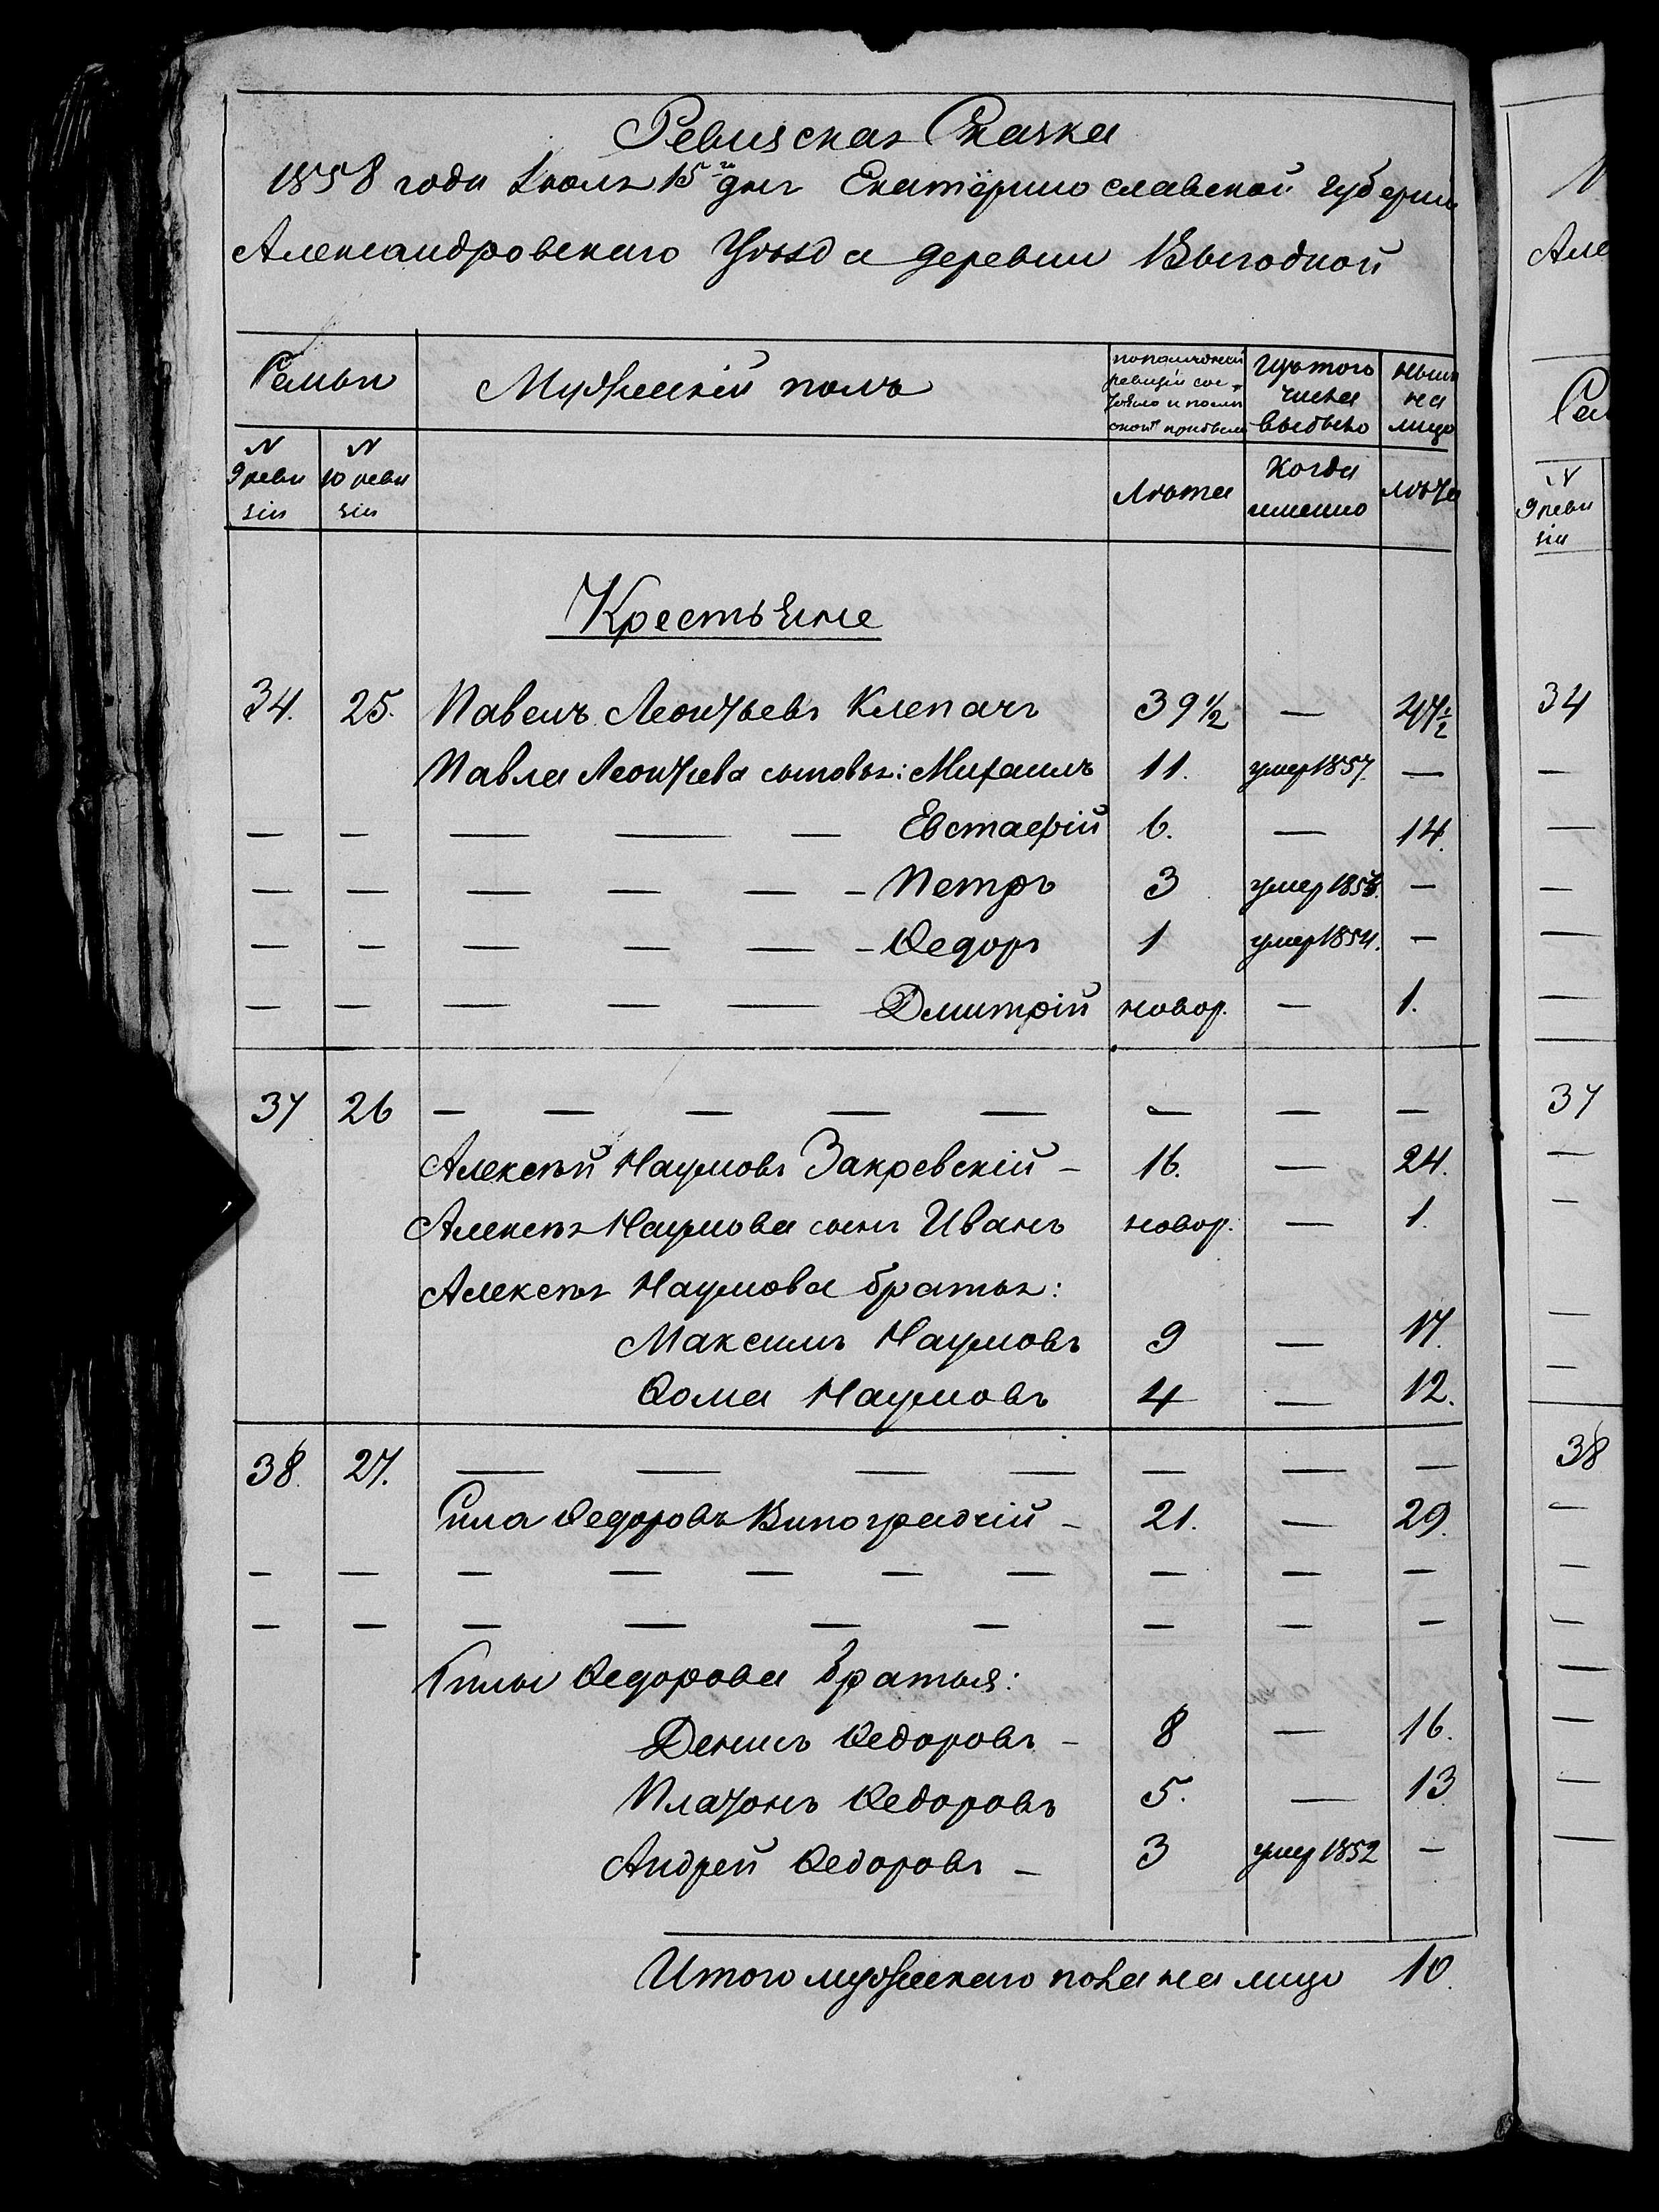 Ревизская Сказка
1858 года Июля 15го дня Екатеринославской губернии
Александровскаго Уѣзда деревни Выгодной
Семьи Мужескій полъ по последней Изъ того нынѣ
ревизіи сос- числа на
тояло и послѣ выбыло лицо
оной прибыло
N N
9 реви 10 реви Лѣта Когда Лѣта
зіи зіи именно
Крестьяне
34. 25. Павелъ Леонтьевъ Клепачъ 39 1/2 — 47 1/2
Павла Леонтьева сыновья: Михаилъ 11. умер 1857. —
— — — — — Евстафій 6. — 14.
— — — — — - Петръ 3 умер 1853. —
— — — — — - Ѳедоръ 1 умер 1854. —
— — — — — Дмитрій новор. — 1.
37 26 — — — — — — — —
Алексѣй Наумовъ Закревскій - 16. — 24.
Алексѣя Наумова сынъ Иванъ новор. — 1.
Алексѣя Наумова братья:
Максимъ Наумовъ 9 — 17.
Ѳома Наумовъ 4 — 12.
38. 27. — — — — — — —
Сила Ѳедоровъ Виноградчій - 21. — 29.
— — — — — — — — — —
— — — — — — — — —
Силы Ѳедорова братья:
Денисъ Ѳедоровъ - 8 — 16.
Платонъ Ѳедоровъ 5. — 13
Андрей Ѳедоровъ - 3 умер 1852 —
Итого мужескаго пола на лицо 10.
Але
N
9 реви
зіи
34
37
38